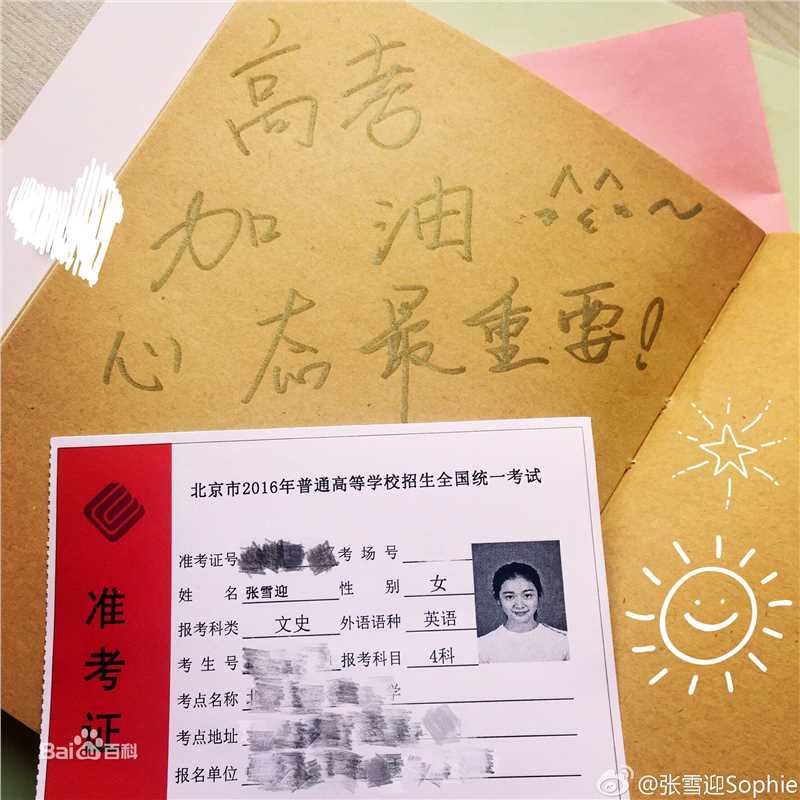 高考
加油
心态最重要!
北京市2016年普通高等学校招生全国统一考试
准考证
准考证号 考场号
姓名 张雪迎 性别 女
报考科类 文史 外语语种 英语
考生号 报考科目 4科
考点名称 北 学
考点地址
报名单位
Baidu百科
@张雪迎Sophie